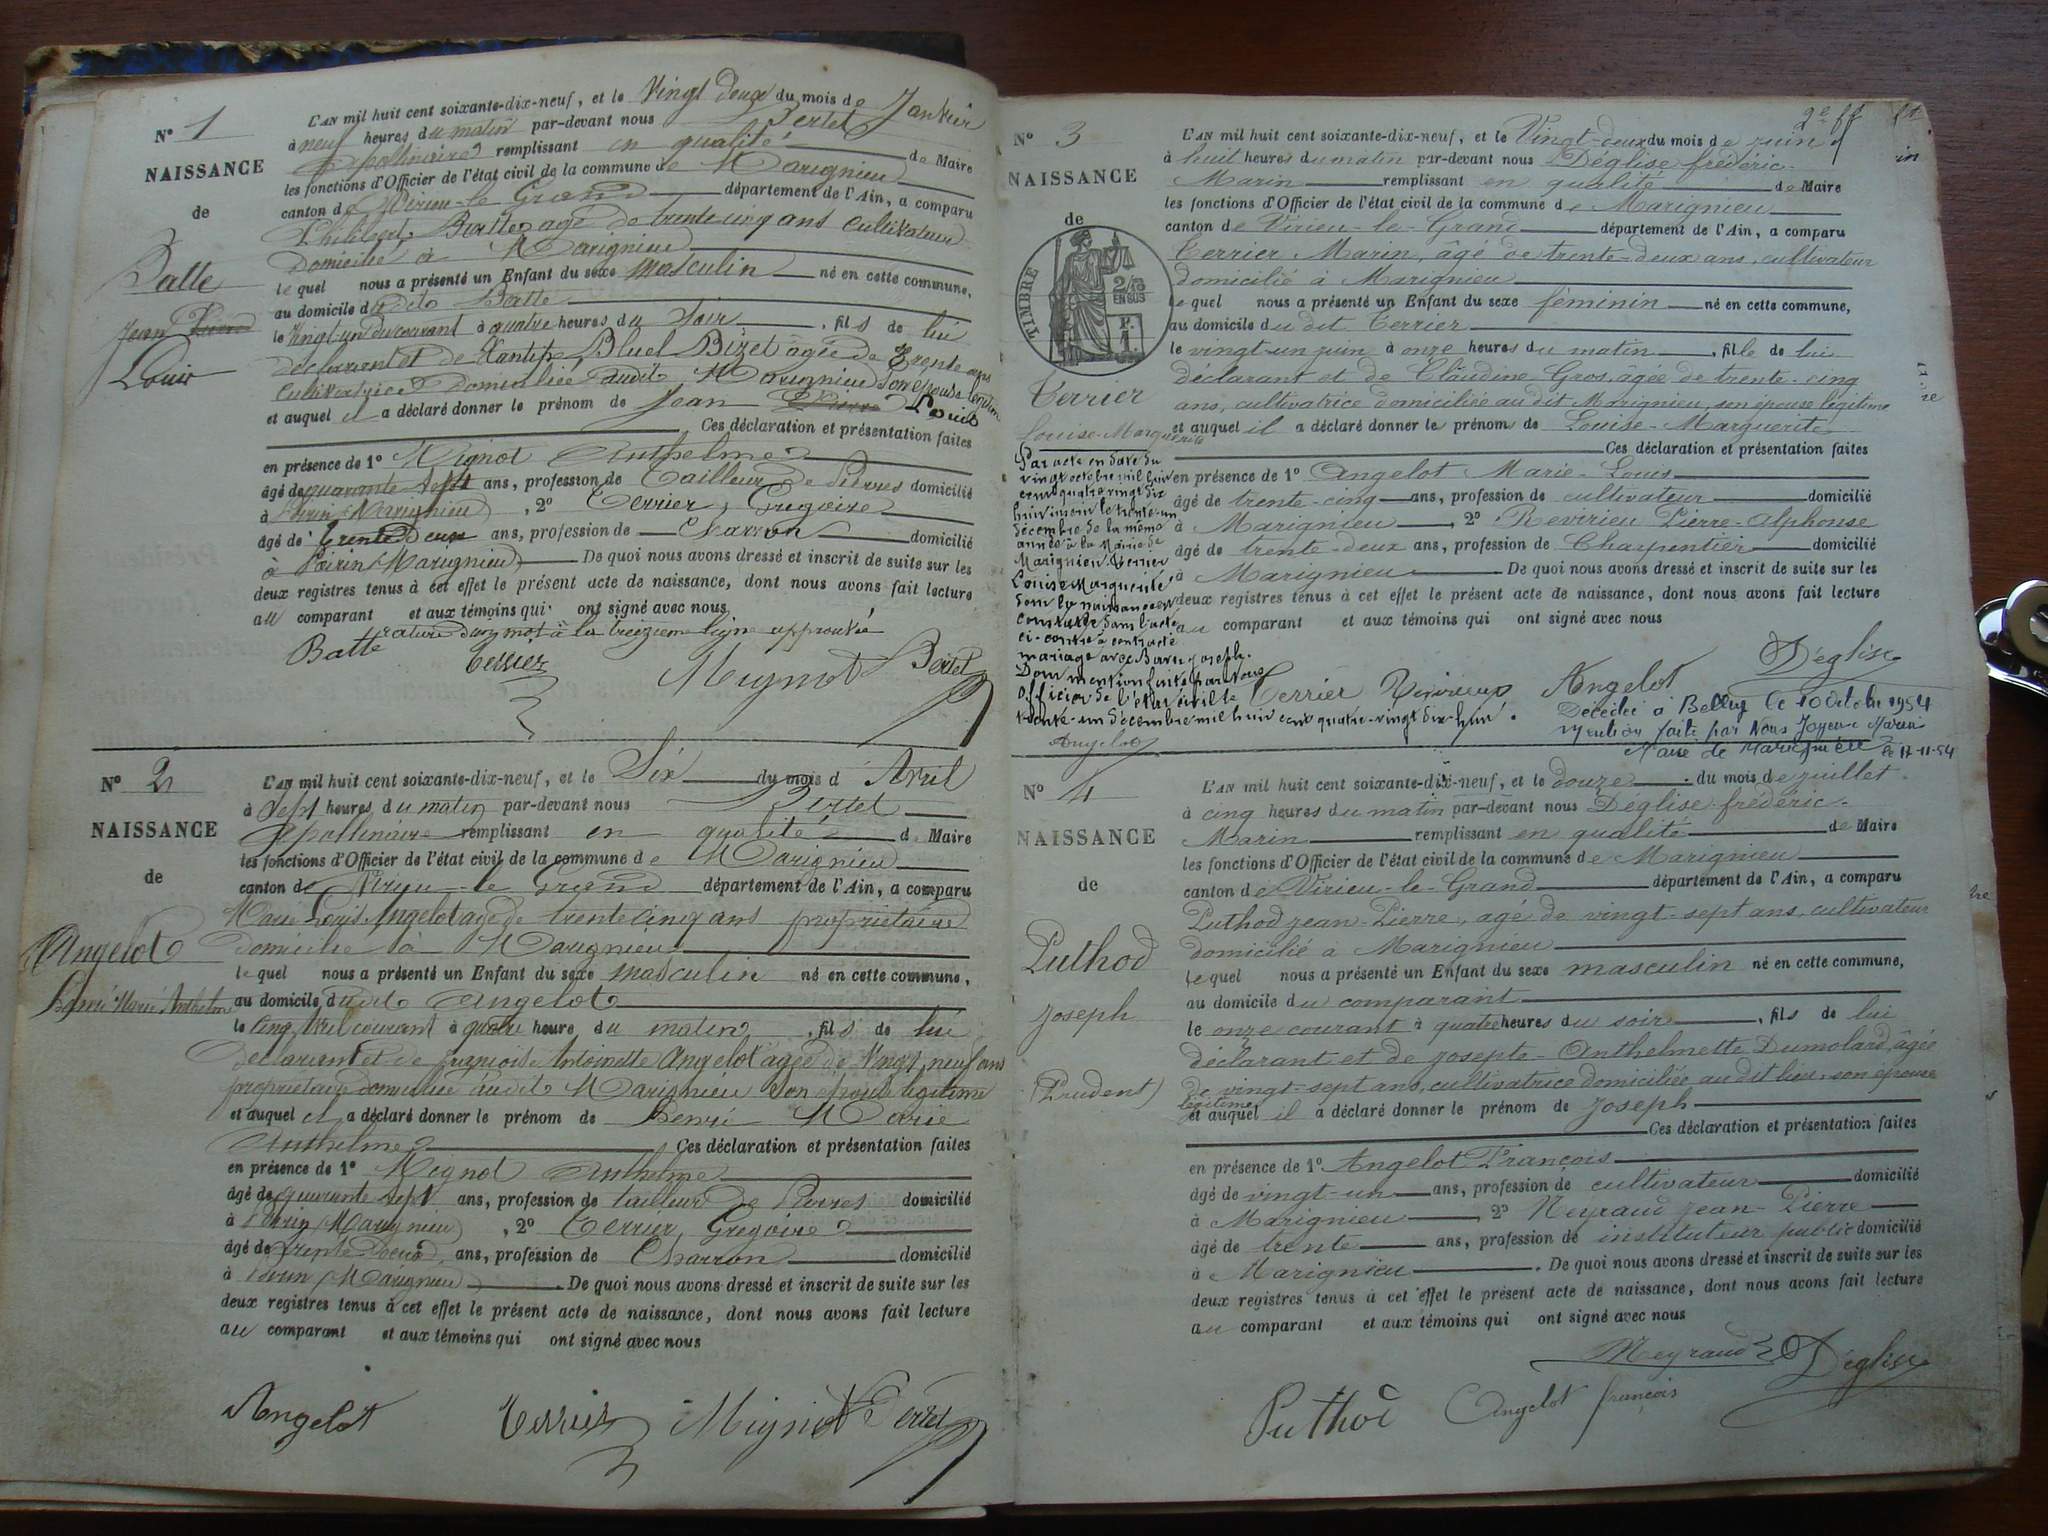 N° 1
NAISSANCE
de
Batte
Jean Pierre
Louis
L'AN mil huit cent soixante-dix-neuf, et le Vingt deux du mois de Janvier
à neuf heures du matin par-devant nous Bertet
Apollinaire remplissant en qualité de Maire
les fonctions d'Officier de l'état civil de la commune de Marignieu
canton de Virieu-le Grand département de l'Ain, a comparu
Philibert Batte agé de trente cinq ans cultivateur
Domicilié à Marignieu
lequel nous a présenté un Enfant du sexe masculin né en cette commune,
au domicile dudit Batte
le Vingt-un du courant à quatre heures du Soir, fils de lui
déclarant et de Bluel Bizet agée de Trente ans
Cultivatrice Domiciliée audit Marignieu son épouse légitime
et auquel il a déclaré donner le prénom de Jean Pierre Louis
Ces déclaration et présentation faites
en présence de 1° Mignot Anthelme
âgé de quarante sept ans, profession de Tailleur de Pierres domicilié
à Poirin (Marignieu), 2° Terrier Gregoire
âgé de trente Deux ans, profession de Charron domicilié
à Poirin (Marignieu) De quoi nous avons dressé et inscrit de suite sur les
deux registres tenus à cet effet le présent acte de naissance, dont nous avons fait lecture
au comparant et aux témoins qui ont signé avec nous
rature d'un mot à la treizieme ligne approuvée
Batte Terrier Mignot Bertet
N° 2
NAISSANCE
de
Angelot
Henri Marie Anthelme
L'AN mil huit cent soixante-dix-neuf, et le Six du mois d'Avril
à Sept heures du matin par-devant nous Bertet
Apollinaire remplissant en qualité de Maire
les fonctions d'Officier de l'état civil de la commune de Marignieu
canton de Virieu-le Grand département de l'Ain, a comparu
Marie Louis Angelot agé de trente cinq ans propriétaire
domicilié à Marignieu
lequel nous a présenté un Enfant du sexe masculin né en cette commune,
au domicile dudit Angelot
le Cinq Avril courant à quatre heure du matin, fils de lui
Déclarant et de françoise Antoinette Angelot agée de Vingt neuf ans
propriétaire domiciliée audit Marignieu Son épouse légitime
et auquel il a déclaré donner le prénom de Henri Marie
Anthelme Ces déclaration et présentation faites
en présence de 1° Mignot Anthelme
âgé de quarante sept ans, profession de tailleur de Pierres domicilié
à Poirin (Marignieu), 2° Terrier Gregoire
âgé de trente deux ans, profession de Charron domicilié
à Poirin (Marignieu). De quoi nous avons dressé et inscrit de suite sur les
deux registres tenus à cet effet le présent acte de naissance, dont nous avons fait lecture
au comparant et aux témoins qui ont signé avec nous
Angelot Terrier Mignot Bertet
N° 3
NAISSANCE
de
TIMBRE
2/10
EN SUS
F.
1
Terrier
Louise-Marguerite
Par acte en date du
vingt octobre mil huit
cent quatre vingt dix
huit inscrit le trente-un
décembre de la même
année à la Mairie de
Marignieu, Terrier
Louise Marguerite
dont la naissance est
constatée dans l'acte
ci-contre a contracté
mariage avec Joseph.
Dont mention faite par nous
officier de l'état civil le
trente-un décembre mil huit cent quatre-vingt dix-huit.
Angelot
L'AN mil huit cent soixante-dix-neuf, et le Vingt-deux du mois de juin
à huit heures du matin par-devant nous Déglise frédéric-
Marin remplissant en qualité de Maire
les fonctions d'Officier de l'état civil de la commune de Marignieu
canton de Virieu-le-Grand département de l'Ain, a comparu
Terrier Marin, âgé de trente-deux ans, cultivateur
domicilié à Marignieu
lequel nous a présenté un Enfant du sexe féminin né en cette commune,
au domicile du dit Terrier
le vingt-un juin à onze heures du matin, fille de lui
déclarant et de Claudine Gros, âgée de trente-cinq
ans, cultivatrice domiciliée au dit Marignieu, son épouse légitime
et auquel il a déclaré donner le prénoms de Louise-Marguerite
Ces déclaration et présentation faites
en présence de 1° Angelot Marie-Louis
âgé de trente-cinq ans, profession de cultivateur domicilié
à Marignieu, 2° Revirieu Pierre-Alphonse
âgé de trente-deux ans, profession de Charpentier domicilié
à Marignieu De quoi nous avons dressé et inscrit de suite sur les
deux registres tenus à cet effet le présent acte de naissance, dont nous avons fait lecture
au comparant et aux témoins qui ont signé avec nous
Terrier Revirieux Angelot Déglise
Décédée à Belley le 10 Octobre 1954
Mention faite par Nous Marin
Maire de Marignieu le 17-11-54
N° 4
NAISSANCE
de
Puthod
Joseph
(Prudent)
L'AN mil huit cent soixante-dix-neuf, et le douze du mois de juillet
à cinq heures du matin par-devant nous Déglise frédéric-
Marin remplissant en qualité de Maire
les fonctions d'Officier de l'état civil de la commune de Marignieu
canton de Virieu-le-Grand département de l'Ain, a comparu
Puthod jean-Pierre, agé de vingt-sept ans, cultivateur
domicilié à Marignieu
lequel nous a présenté un Enfant du sexe masculin né en cette commune,
au domicile du comparant
le onze courant à quatre heures du soir, fils de lui
déclarant et de josepte-Anthelmette Dumolard, âgée
de vingt-sept ans, cultivatrice domiciliée au dit lieu, son épouse
légitime
et auquel il a déclaré donner le prénom de Joseph
Ces déclaration et présentation faites
en présence de 1° Angelot François
âgé de vingt-un ans, profession de cultivateur domicilié
à Marignieu 2° Neyraud jean-Pierre
âgé de trente ans, profession de instituteur public domicilié
à Marignieu. De quoi nous avons dressé et inscrit de suite sur les
deux registres tenus à cet effet le présent acte de naissance, dont nous avons fait lecture
au comparant et aux témoins qui ont signé avec nous
Neyraud Déglise
Puthod Angelot françois